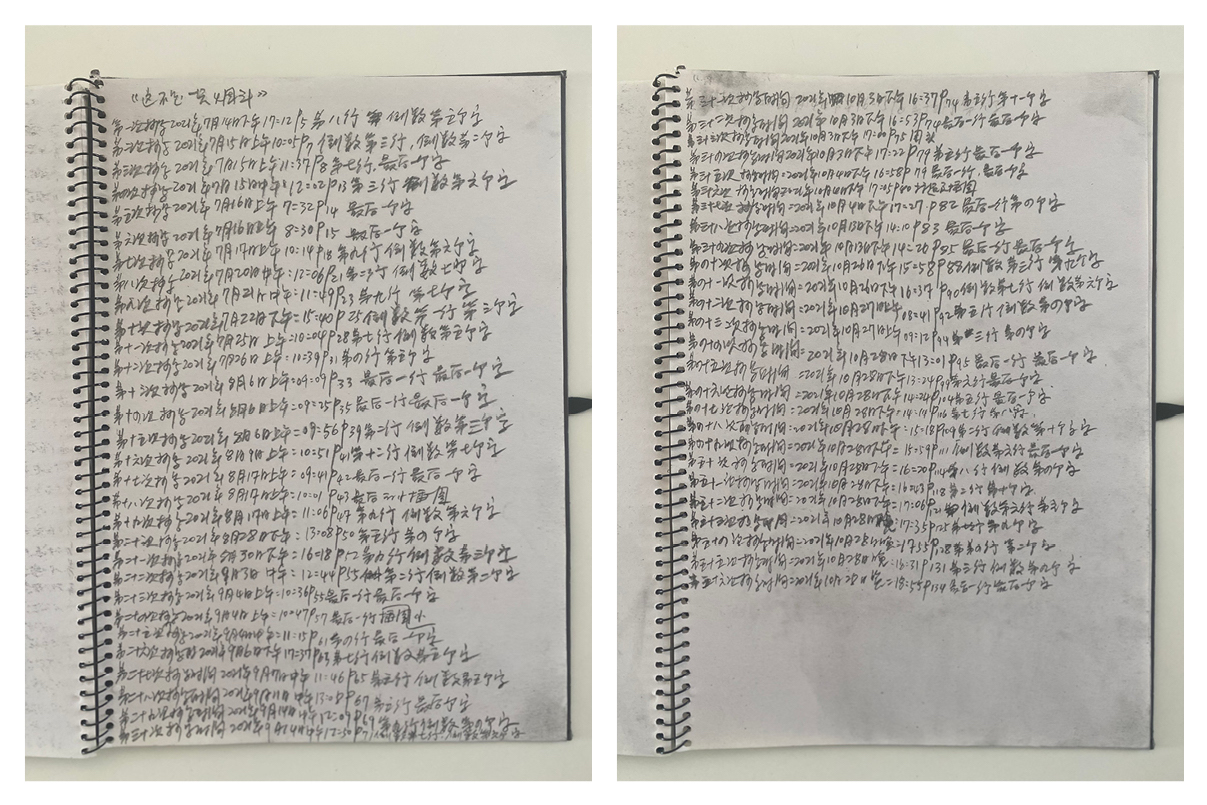 《这不是一只烟斗》
第一次抄写2021年7月14日下午17:12P5第八行 倒数第三个字
第二次抄写2021年7月15日上午10:05P7倒数第三行,倒数第二个字
第三次抄写2021年7月15日上午11:37P8第七行.最后一个字
第四次抄写2021年7月15日中午:12:02P13第三行 倒数第六个字
第五次抄写2021年7月16日上午 7:32P14 最后一个字
第六次抄写2021年7月16日上午 8:30P15 最后一个字
第七次抄写2021年7月17日上午 10:14P18第九行 倒数第六个字
第八次抄写2021年7月20日中午:12:06P21第三行 倒数七个字
第九次抄写2021年7月21日中午:11:49P23第九行 第七个字
第十次抄写2021年7月22日下午:15:40P25倒数第一行 第三个字
第十一次抄写2021年7月25日上午:10:04P28第七行倒数第三个字
第十二次抄写2021年7月26日上午:11:39P31第四行第五个字
第十三次抄写2021年8月6日上午:09:09P33 最后一行 最后一个字
第十四次抄写2021年8月6日上午:09:25P35最后一行最后一个字
第十五次抄写2021年8月6日上午:09:56P39第二行 倒数第三个字
第十六次抄写2021年8月9日上午:10:51P41第十二行 倒数第七个字
第十七次抄写2021年8月17日上午:09:41P42最后一行最后一个字
第十八次抄写2021年8月17日上午:10:01 P43最后 小插图
第十九次抄写2021年8月17日上午:11:06P47 第九行 倒数第六个字
第二十次抄写2021年8月28日下午:13:08P50第五行第四个字
第二十一次抄写2021年8月30日下午:16:18P52第九行倒数第三个字
第二十二次抄写2021年9月3日中午:12:44P55第二行倒数第二个字
第二十三次抄写2021年9月4日上午:10:36P55最后一行最后一个字
第二十四次抄写2021年9月4日上午:10:47P57最后一行插图小
第二十五次抄写2021年9月4日中午:11:15P61第四行最后一个字
第二十六次抄写时2021年9月6日下午17:37P63第七行倒数第五个字
第二十七次抄写时间2021年9月7日中午11:46P65第五行倒数第五个字
第二十八次抄写时间2021年9月11日中午13:08P67第三行最后一个字
第二十九次抄写时间2021年9月14日中午12:09P69第九行倒数第四个字
第三十次抄写时间2021年9月14日中午12:50P71倒数第七行倒数第六个字
第三十一次抄写时间2021年10月3日下午16:37P74第五行第十一个字
第三十二次抄写时间2021年10月3日下午16:53P74最后一行最后一个字
第三十三次抄写时间2021年10月3日下午17:00P75图
第三十四次抄写时间2021年10月3日下午17:22P79第五行最后一个字
第三十五次抄写时间:2021年10月4日下午16:58P79最后一行.最后一个字
第三十六次抄写时间:2021年10月4日下午17:05P80 插图
第三十七次抄写时间:2021年10月4日下午17:27P82最后一行第四个字
第三十八次抄写时间:2021年10月13日下午14:10P83 最后一个字
第三十九次抄写时间:2021年10月13日下午14:26P85最后一行最后一个字
第四十次抄写时间:2021年10月26日下午15:58P88倒数第三行第九个字
第四十一次抄写时间:2021年10月26日下午16:37P90倒数第七行倒数第六个字
第四十二次抄写时间:2021年10月27日上午08:41P92第五行倒数第四个字
第四十三次抄写时间:2021年10月27日上午09:12P94第三行第四个字
第四十四次抄写时间:2021年10月28日下午13:01P95最后一行最后一个字
第四十五次抄写时间:2021年10月28日下午13:24P99第六行最后一个字
第四十六次抄写时间:2021年10月28日下午:14:24P104第五行最后一个字
第四十七次抄写时间:2021年10月28日下午:14:19P106第七行第八字.
第四十八次抄写时间:2021年10月28日下午:15:18P109第二行倒数第十个字
第四十九次抄写时间:2021年10月28日下午:15:59P111倒数第六行最后一个字
第五十次抄写时间:2021年10月28日下午:16:20P114第八行倒数第四个字
第五十一次抄写时间:2021年10月28日下午:16:43P118第二行第十个字
第五十二次抄写时间:2021年10月28日下午:17:06P121倒数第六行第三个字
第五十三次抄写时间:2021年10月28日晚:17:35P125第 个第九个字
第五十四次抄写时间:2021年10月28日晚:17:55P128第四行第二个字
第五十五次抄写时间:2021年10月28日晚:18:31P131第三行倒数第四个字
第五十六次抄写时间:2021年10月28日晚:18:55P134最后一行最后一个字